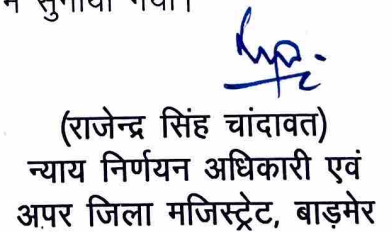 सुनाया गया।
(राजेन्द्र सिंह चांदावत)
न्याय निर्णयन अधिकारी एवं
अपर जिला मजिस्ट्रेट, बाड़मेर